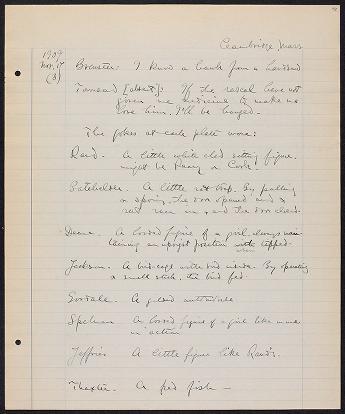 Cambridge, Mass
1909
Nov. 17
(3)
Brewster: I know a hawk from a handsaw
[absent]: If the rascal have not
given me medicine to make me
love him, I'll be hanged.
The jokes at each plate were:
Rand. A little white clad sitting figure,
might be Peary or Cook.
Batchelder. A little rat trap. By pulling
a spring, the door opened and a
rat ran in and the door closed.
Deane. A loaded figure of a girl always
an upright position when tipped.
Jackson. A bird cage with bird inside. By operating
a small stick, the bird fed.
Goodale. A
Spelman A loaded figure of a girl like mine
in action
Jeffries A little figure like Rand's.
Thaxter. A fish —